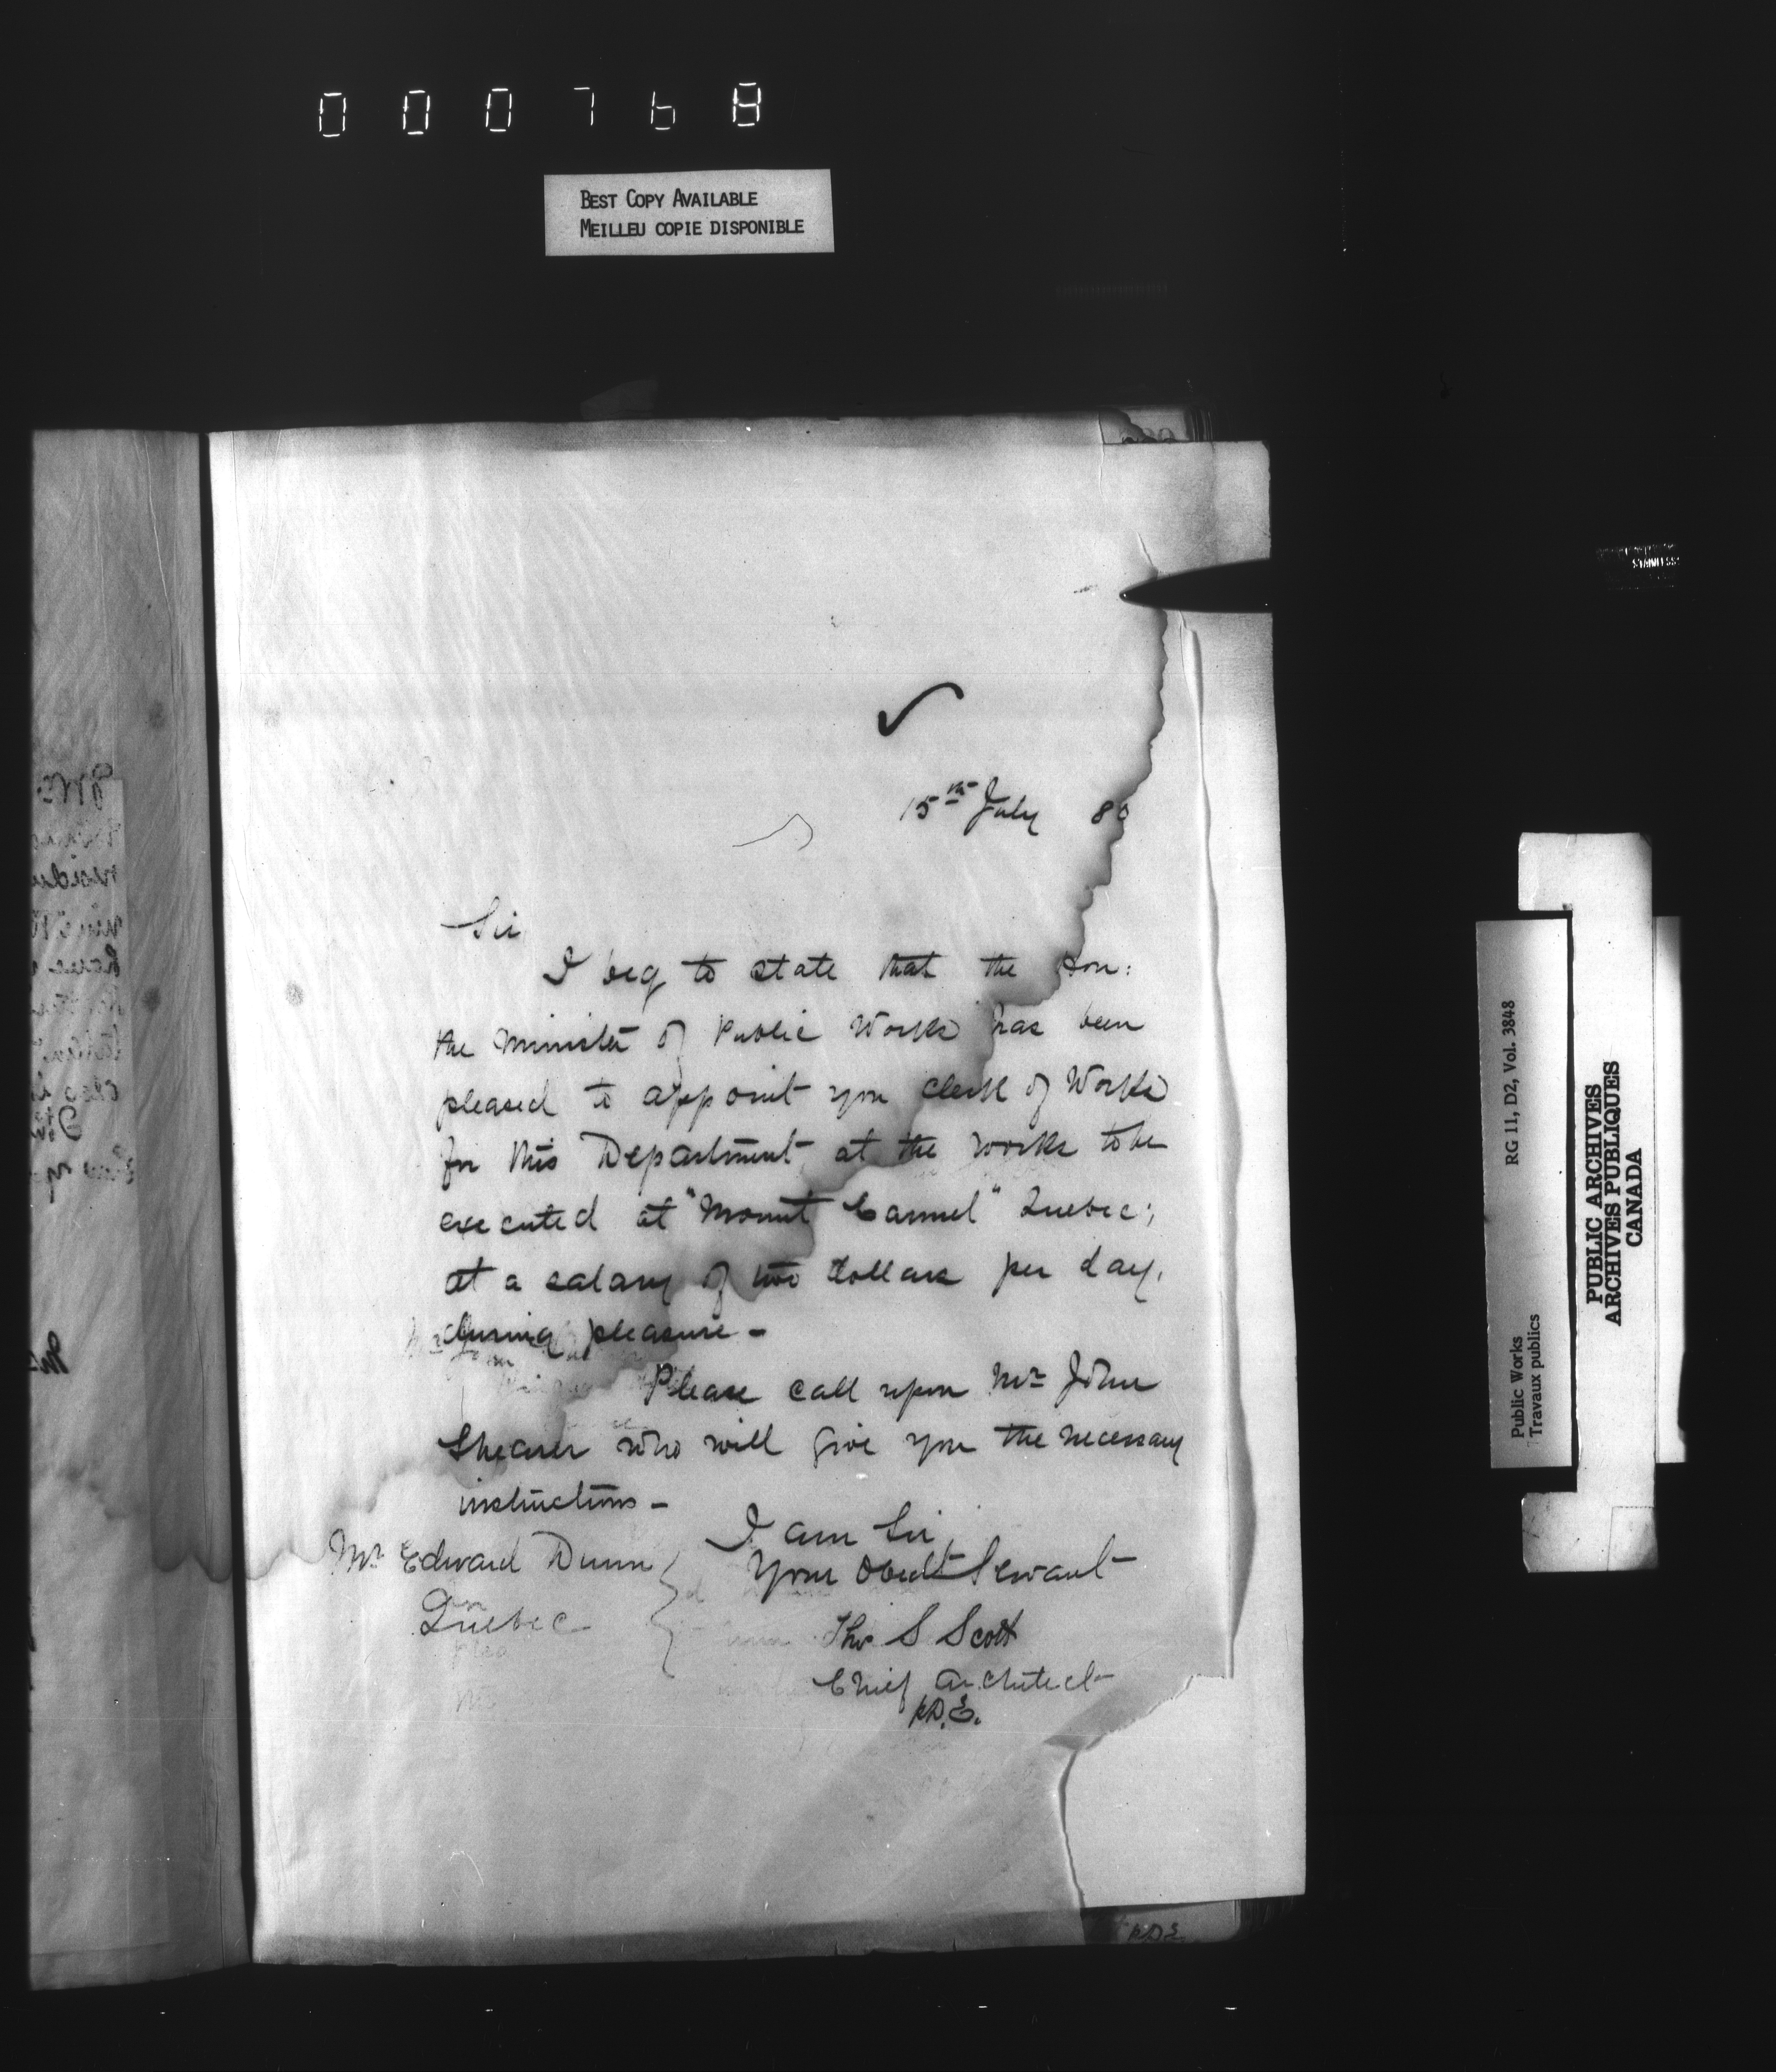 000768
BEST COPY AVAILABLE
MEILLEU COPIE DISPONIBLE
15th July 80
Sir
I beg to state that the Hon:
the Minister of Public Works has been
pleased to appoint you Clerk of Works
for this Department at the works to be
executed at "Mount Carmel" Quebec;
at a salary of two dollars per day,
during pleasure -
Please call upon Mr John
Shearer who will give you the necessary
instructions -
I am Sir
Your Obedt Servant
Mr Edward Dunn
Quebec
Thos S Scott
Chief Architect
p D.E.
p D E
RG 11, D2, Vol. 3848
Public Works
Travaux publics
PUBLIC ARCHIVES
ARCHIVES PUBLIQUES
CANADA